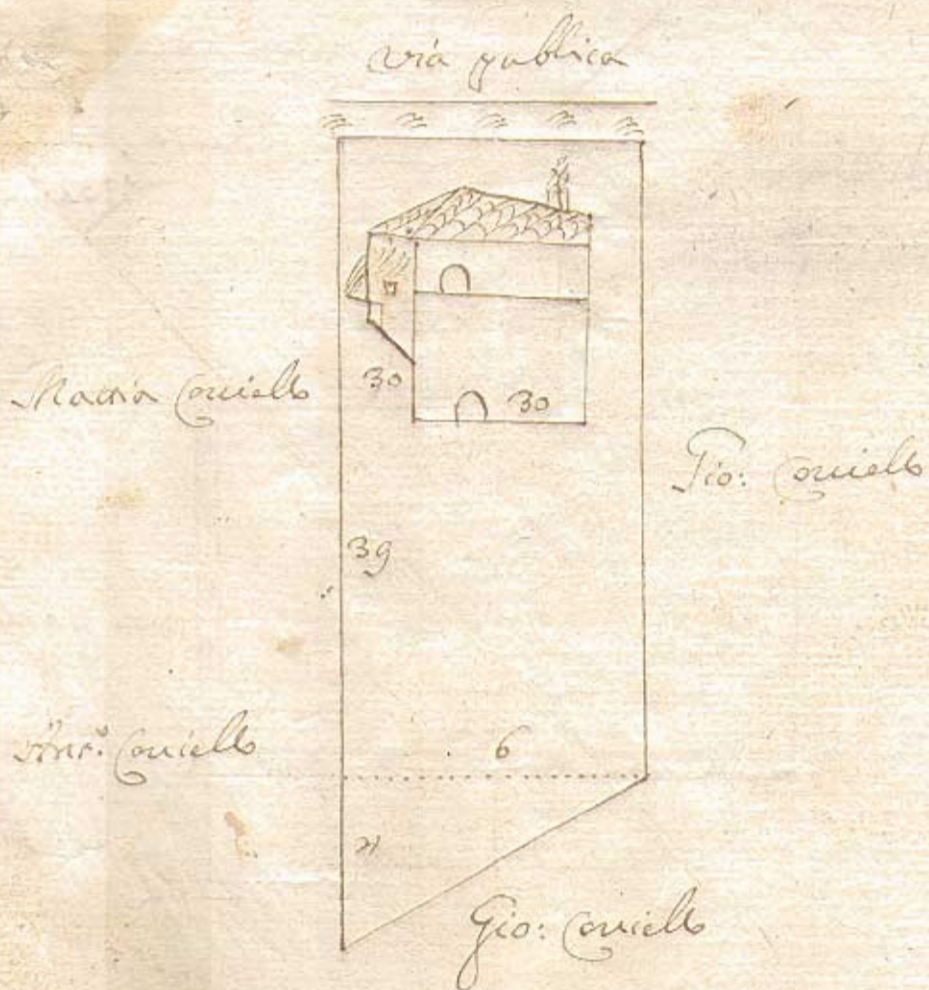 via publica
30
Mattia Coviello
30
Gio: Coviello
39
Ant.º Coviello
6
Gio: Coviello